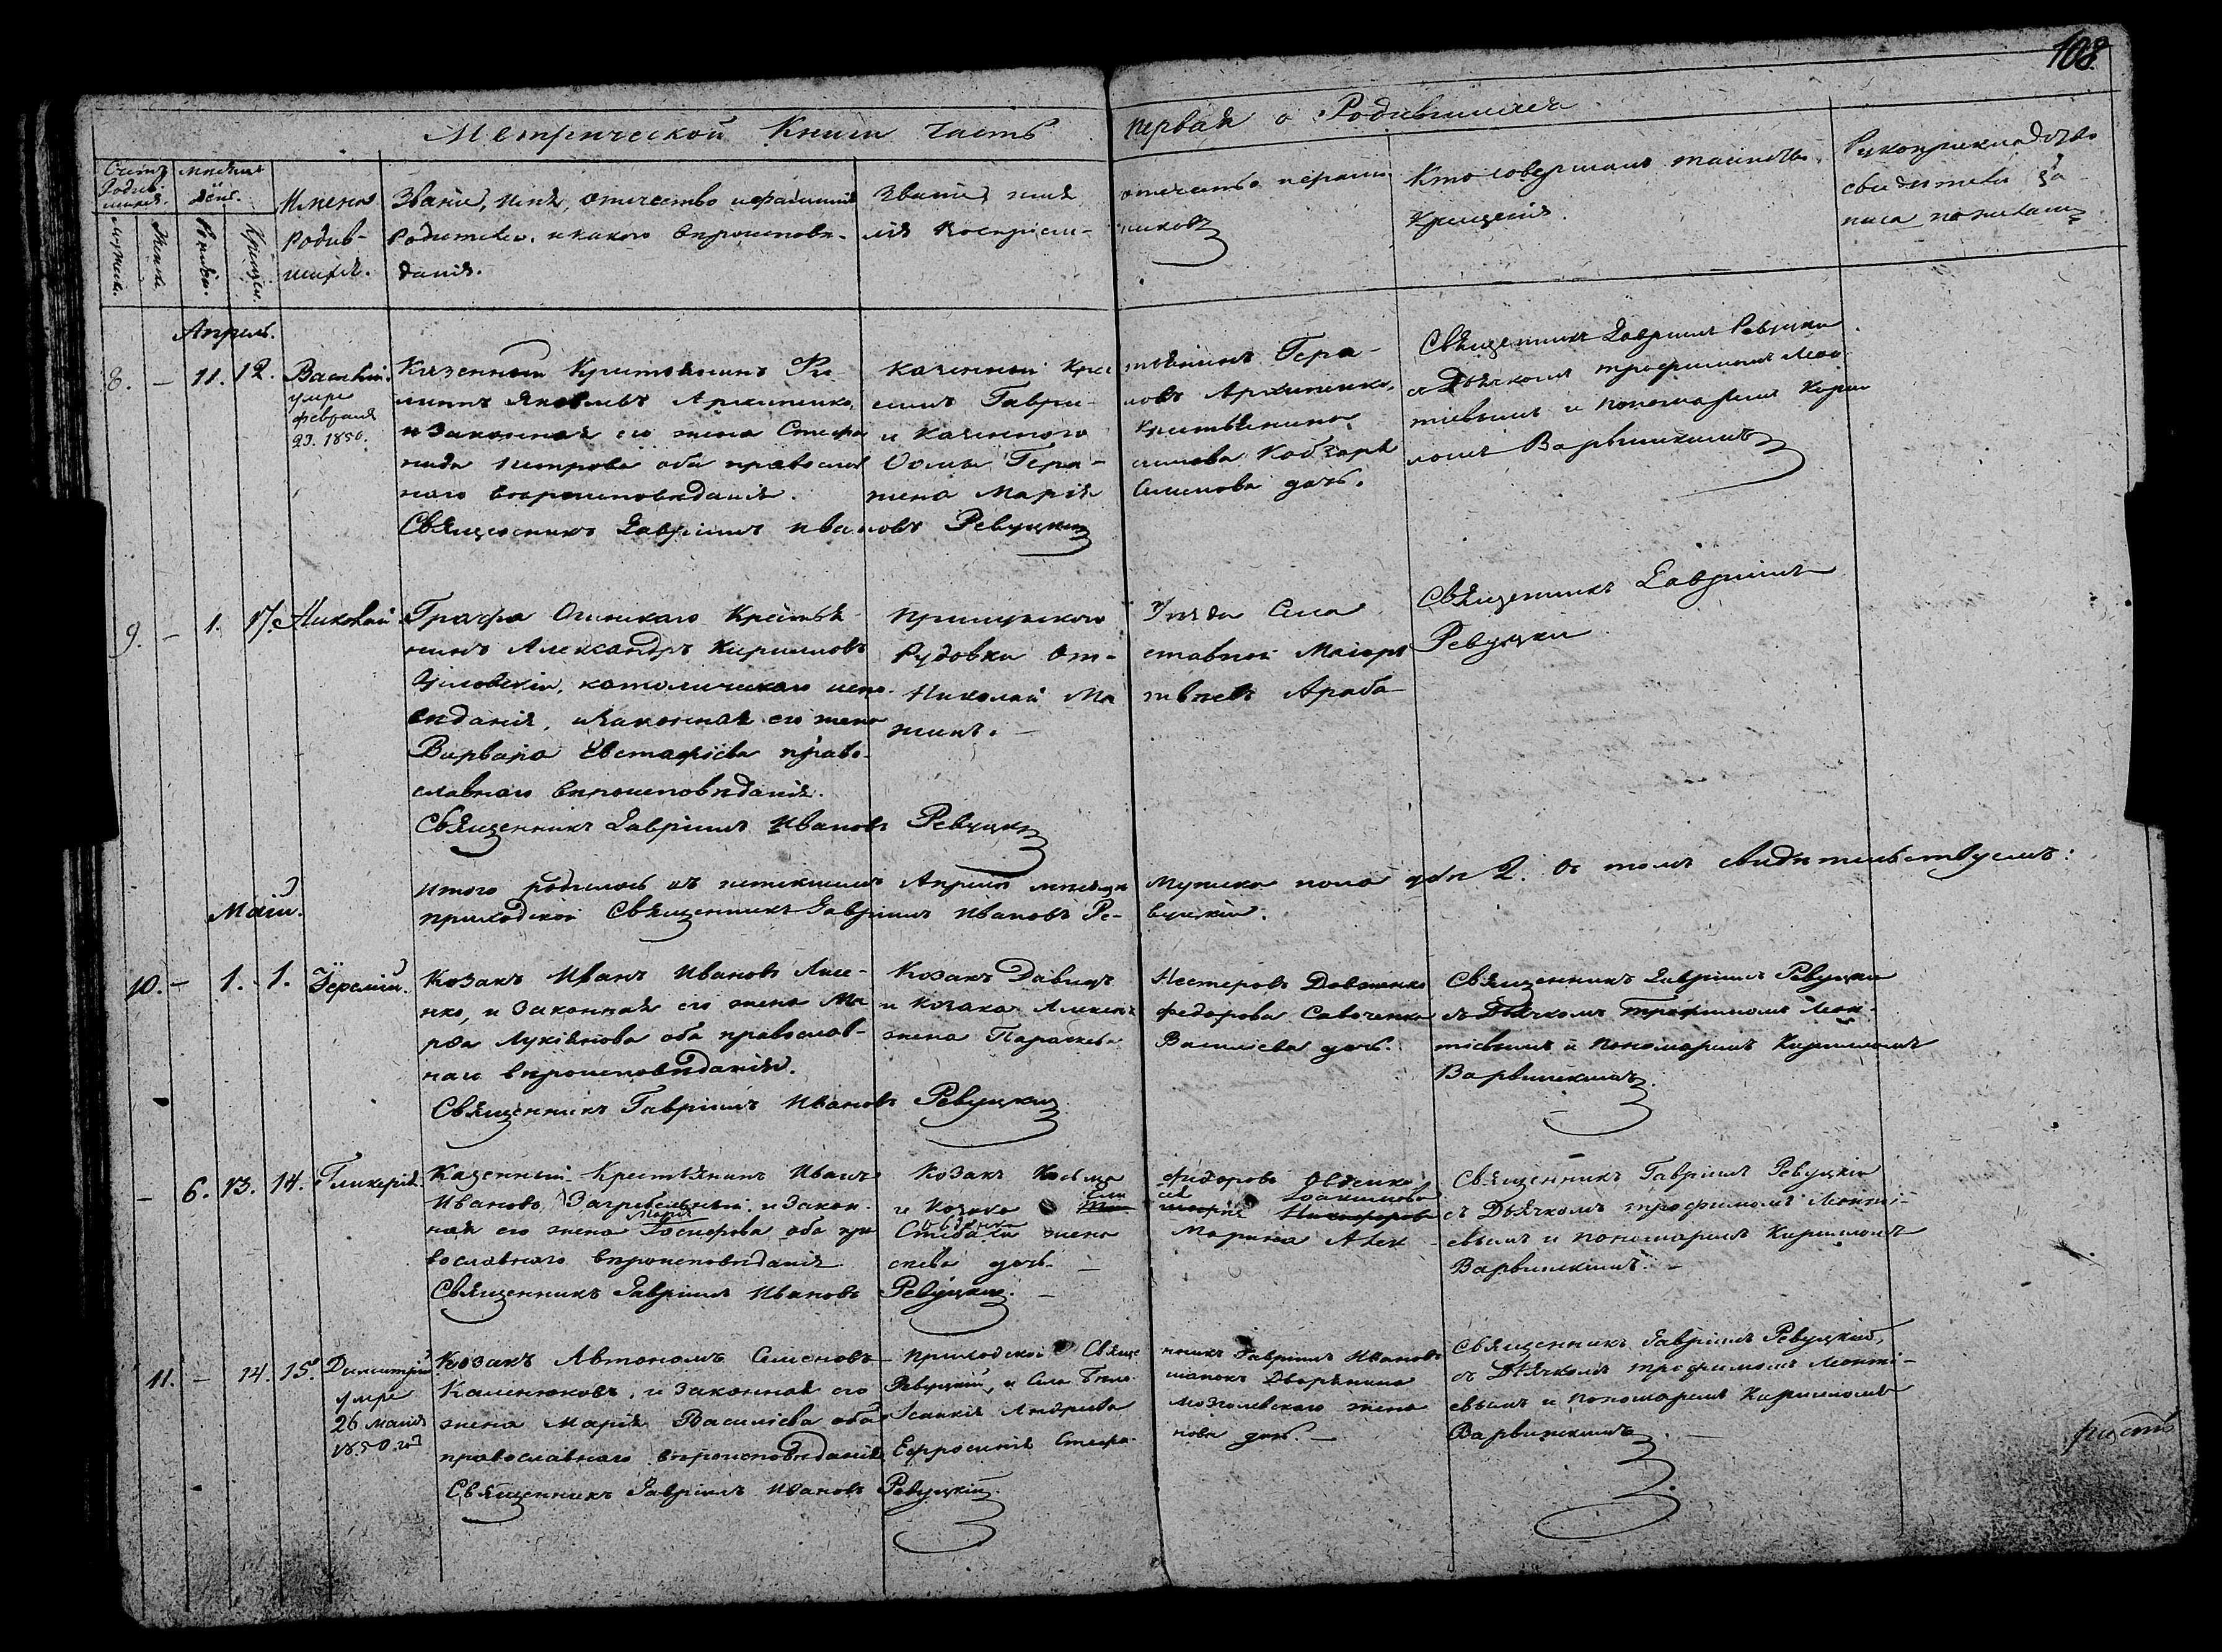 108
Метрической Книги Часть первая о Родившихся
Счетъ Родив-шихся.
Мужеска.
Женска
Месяцъ день.
Рожден.
Крещен.
Имена
Родив-
шихся.
Званіе, имя, отчество и фамилия
Родителей, и какого вероисповѣ-
данія.
Званіе, имя отечество и фами-
лія Воспріем-никовъ
Кто совершалъ таинство
Крещенія.
Рукоприкладство
свидетелей за-
писи по желанію
Апрель.
8. – 11. 12.
Василій.
умре
февраля
23. 1850.
Казенный Крестьянинъ Фи-
липпъ Яковлевъ Архипенко,
и Законная его жена Стефа
нида Петрова оба православ
наго вероисповеданія.
Священникъ Гавріилъ Ивановъ Ревуцкій
Казенный Крестьянинъ Гера-
симъ Гаврииловъ Архипенко,
и Казенного Крестьянина
Фомы Герасимова Кобзаря
жена Марія Симонова дочь.
Священникъ Гавріилъ Ревуцкій
съ Дьячкомъ Трофимомъ Леон
тіевымъ и пономаремъ Кири
ломъ Варвинскимъ
9. – 1. 17.
Николай
Графа Огинскаго Крестья-
нинъ Александръ Кирилловъ
католическаго испо-
веданія, и законная его жена
Варвара Евстафіева право-
славнаго вероисповеданія.
Священникъ Гавріилъ Ивановъ Ревуцкій
Прилуцкого Уезда Села
Рудовки Отставной Маіоръ
Николай Матвеевъ Араба-
жинъ. –
Священникъ Гавріилъ
Ревуцкій
Итого родилось въ истекшемъ Апреле месяце Мужеска пола два 2. В томъ свидетельствуемъ:
приходской Священникъ Гавріилъ Ивановъ Ре-вуцкій.
Маій.
10. – 1. 1.
Іеремій.
Козакъ Иванъ Ивановъ Лисе-
нко, и Законная его жена Ма
рфа Лукіянова оба православ-
наго вероисповеданія.
Священникъ Гавріилъ Ивановъ Ревуцкій
Козакъ Давидъ Нестеровъ Довженко
и Козака Алексея Федорова Савоченка
жена Параскева Василіева дочь.
Священникъ Гавріилъ Ревуцкій
съ Дьячкомъ Трофимомъ Леон-
тіевымъ и пономаремъ Кирилломъ
Варвинскимъ
– 6. 13. 14.
Гликерія.
Казенный Крестьянинъ Иванъ
Ивановъ Загребельный, и Закон-
ная его жена Марія Іосифова оба пра
вославнаго вероисповеданія
Священникъ Гавріилъ Ивановъ Ревуцкій. –
Козакъ Косьма Федоровъ Овденко
и Козака Іоакимова
жена Марина Алек
сеева дочь. –
Священникъ Гавріилъ Ревуцкій
съ Дьячкомъ Трофимомъ Леонті-
евымъ и пономаремъ Кирилломъ
Варвинскимъ. –
11. – 14. 15.
Димитрій
умре
26 маия
1850. год
Козакъ Автономъ Семеновъ
Каленюковъ, и Законная его
жена Марія Василіева оба
православнаго вероисповеданія
Священникъ Гавріилъ Ивановъ Ревуцкій.
Приходской Священникъ Гавріилъ Ивановъ
Ревуцкій, и Села Дворянина
Іоанкія Андреева Мозголевского жена
Ефросинія Стефанова дочь. –
Священникъ Гавріилъ Ревуцкій,
съ Дьячкомъ Трофимомъ Леонті-
евымъ и пономаремъ Кирилломъ
Варвинскимъ. –